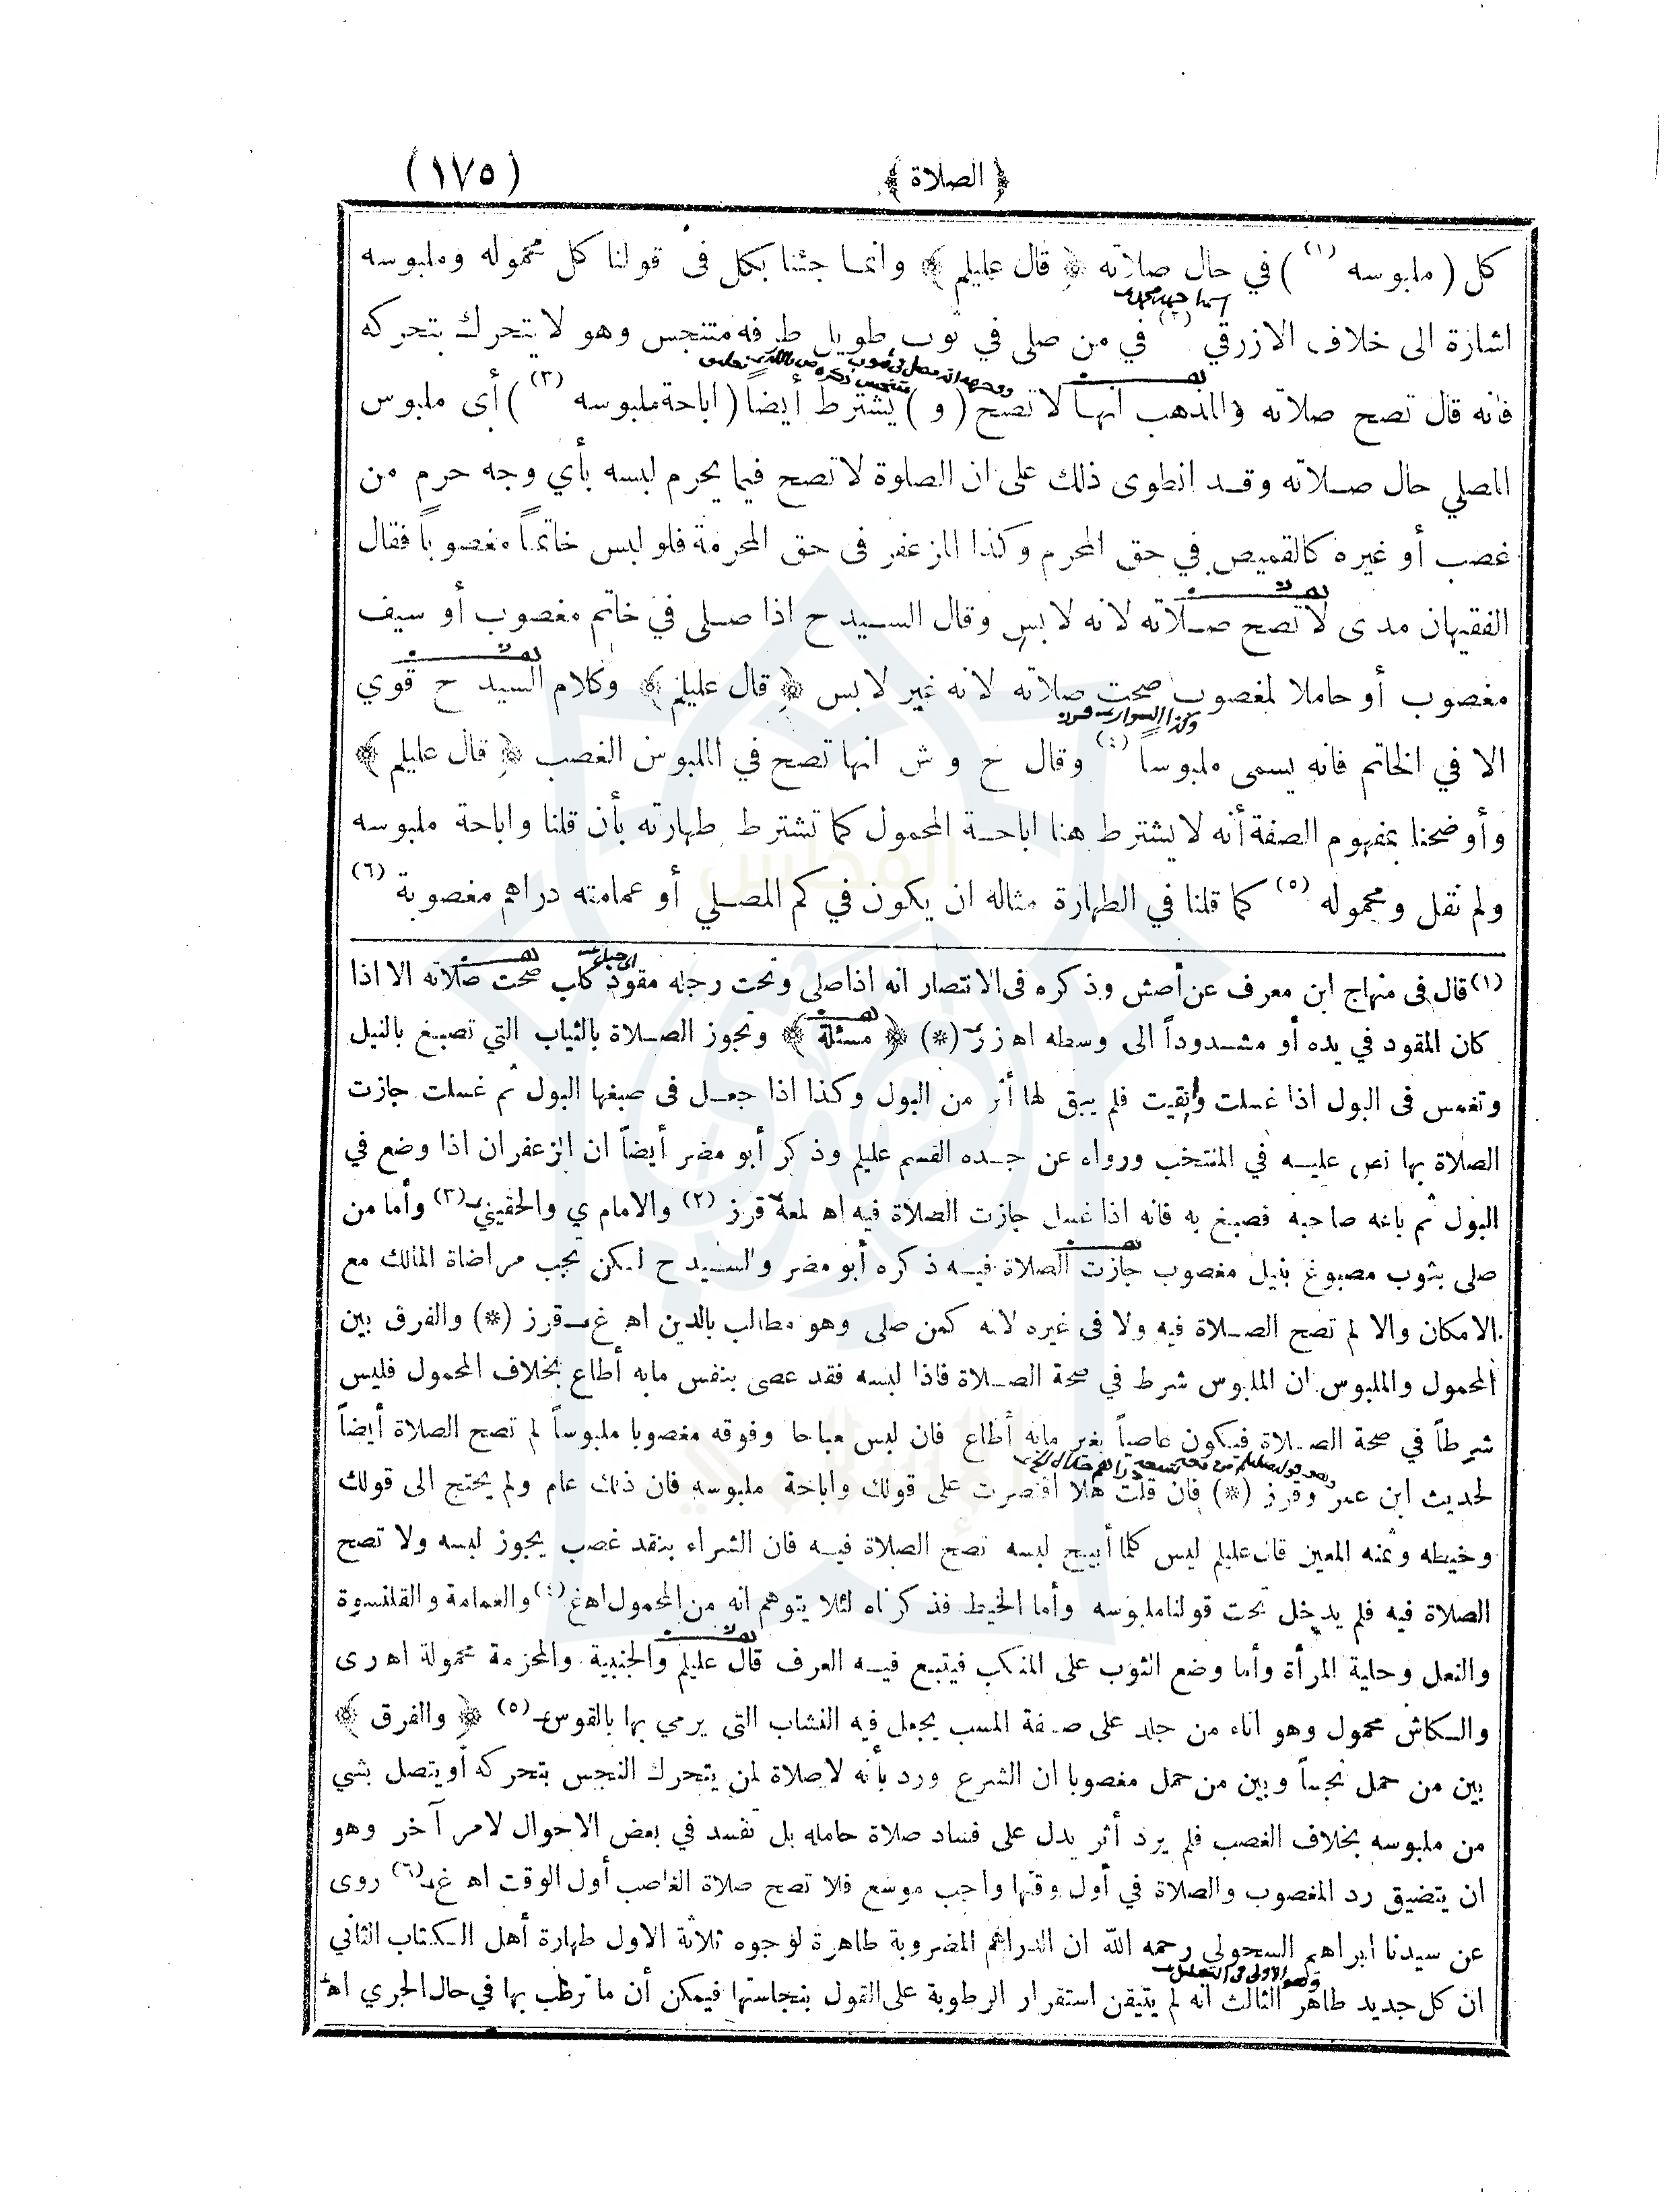 (١٧٥)
﴿ الصلاة ﴾
كل ( ملبوسه (١) ) في حال صلاته ﴿ قال عليلم ﴾ وانما جئنا بكل فى قولنا كل محموله وملبوسه
اشارة الى خلاف الازرقي (٢) في من صلى في ثوب طويل طرفه متنجس وهو لا يتحرك بتحركه
فانه قال تصح صلاته والمذهب انها لا تصح ( و ) يشترط أيضاً ( اباحة ملبوسه (٣) ) أى ملبوس
المصلي حال صلاته وقد انطوى ذلك على ان الصلوة لا تصح فيما يحرم لبسه بأي وجه حرم من
غصب أو غيره كالقميص في حق المحرم وكذا المزعفر فى حق المحرمة فلو لبس خاتماً مغصوباً فقال
الفقيهان مد ى لا تصح صلاته لانه لابس وقال السيد ح اذا صلى في خاتم مغصوب أو سيف
مغصوب أو حاملا لمغصوب صحت صلاته لانه غير لابس ﴿ قال عليلم ﴾ وكلام السيد ح قوي
وكذا السوار
الا في الخاتم فانه يسمى ملبوساً (٤) وقال ح و ش انها تصح في الملبوس الغصب ﴿ قال عليلم ﴾
وأوضحنا بمفهوم الصفة أنه لا يشترط هنا اباحة المحمول كما تشترط طهارته بأن قلنا واباحة ملبوسه
ولم نقل ومحموله (٥) كما قلنا في الطهارة مثاله ان يكون في كم المصلي أو عمامته دراهم مغصوبة (٦)
(١) قال فى منهاج ابن معرف عن أصش وذكره فى الانتصار انه اذا صلى وتحت رجله مقود كلب صحت صلاته الا اذا
كان المقود في يده أو مشدوداً الى وسطه اهـ زر (*) ﴿ مسئلة ﴾ وتجوز الصلاة بالثياب التي تصبغ بالنيل
وتغمس فى البول اذا غسلت وأنقيت فلم يبق لها أثر من البول وكذا اذا جعل فى صبغها البول ثم غسلت جازت
الصلاة بها نص عليه في المنتخب ورواه عن جده القسم عليلم وذكر أبو مضر أيضاً ان الزعفران اذا وضع في
البول ثم باعه صاحبه فصبغ به فانه اذا غسل جازت الصلاة فيه اهـ لمعة قرز (٢) والامام ي والحقيني (٣) وأما من
صلى بثوب مصبوغ بنيل مغصوب جازت الصلاة فيه ذكره أبو مضر والسيد ح لكن تجب مراضاة المالك مع
الامكان والا لم تصح الصلاة فيه ولا فى غيره لانه كمن صلى وهو مطالب بالدين اهـ غ قرز (*) والفرق بين
المحمول والملبوس ان الملبوس شرط في صحة الصلاة فاذا لبسه فقد عصى بنفس مابه أطاع بخلاف المحمول فليس
شرطاً في صحة الصلاة فيكون عاصياً بغير مابه أطاع فان لبس مباحا وفوقه مغصوبا ملبوساً لم تصح الصلاة أيضاً
لحديث ابن عمر وقرز (*) فان قلت هلا اقتصرت على قولك واباحة ملبوسه فان ذلك عام ولم يحتج الى قولك
وخيطه وثمنه المعين قال عليلم ليس كلما أبيح لبسه تصح الصلاة فيه فان الشراء بنقد غصب يجوز لبسه ولا تصح
الصلاة فيه فلم يدخل تحت قولنا ملبوسه وأما الخيط فذكرناه لئلا يتوهم انه من المحمول اهـ غ (٤) والعمامة والقلنسوة
والنعل وحلية المرأة وأما وضع الثوب على المنكب فيتبع فيه العرف قال عليلم والجنبية والمحزمة محمولة اهـ رى
والكاش محمول وهو اناء من جلد على صفة المسب يجعل فيه النشاب التى يرمي بها بالقوس (٥) ﴿ والفرق ﴾
بين من حمل نجساً وبين من حمل مغصوبا ان الشرع ورد بأنه لا صلاة لمن يتحرك النجس بتحركه أو يتصل بشي
من ملبوسه بخلاف الغصب فلم يرد أثر يدل على فساد صلاة حامله بل تفسد في بعض الاحوال لامر آخر وهو
ان يتضيق رد المغصوب والصلاة في أول وقتها واجب موسع فلا تصح صلاة الغاصب أول الوقت اهـ غ (٦) روى
عن سيدنا ابراهيم السحولي رحمه الله ان الدراهم المضروبة طاهرة لوجوه ثلاثة الاول طهارة أهل الكتاب الثانى
ان كل جديد طاهر الثالث انه لم يتيقن استقرار الرطوبة على القول بنجاستها فيمكن أن ما ترطب بها في حال الجري اهـ